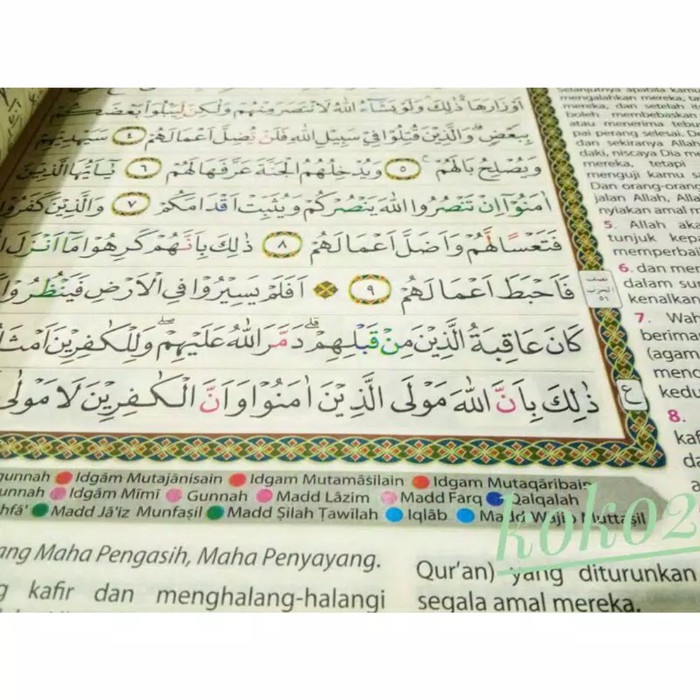 اَوْزَارَهَا ذٰلِكَ وَلَوْ يَشَاۤءُ اللّٰهُ لَانْتَصَرَ مِنْهُمْ وَلٰكِنْ لِّيَبْلُوَا۟ بَعْضَكُمْ
بِبَعْضٍ وَالَّذِيْنَ قُتِلُوْا فِيْ سَبِيْلِ اللّٰهِ فَلَنْ يُّضِلَّ اَعْمَالَهُمْ ٤ سَيَهْدِيْهِمْ
وَيُصْلِحُ بَالَهُمْ ٥ وَيُدْخِلُهُمُ الْجَنَّةَ عَرَّفَهَا لَهُمْ ٦ يٰٓاَيُّهَا الَّذِيْنَ
اٰمَنُوْٓا اِنْ تَنْصُرُوا اللّٰهَ يَنْصُرْكُمْ وَيُثَبِّتْ اَقْدَامَكُمْ ٧ وَالَّذِيْنَ كَفَرُوْا
فَتَعْسًا لَّهُمْ وَاَضَلَّ اَعْمَالَهُمْ ٨ ذٰلِكَ بِاَنَّهُمْ كَرِهُوْا مَآ اَنْزَلَ
فَاَحْبَطَ اَعْمَالَهُمْ ٩ اَفَلَمْ يَسِيْرُوْا فِى الْاَرْضِ فَيَنْظُرُوْا
كَانَ عَاقِبَةُ الَّذِيْنَ مِنْ قَبْلِهِمْ ۗ دَمَّرَ اللّٰهُ عَلَيْهِمْ ۖ وَلِلْكٰفِرِيْنَ
ذٰلِكَ بِاَنَّ اللّٰهَ مَوْلَى الَّذِيْنَ اٰمَنُوْا وَاَنَّ الْكٰفِرِيْنَ لَا مَوْلٰى
نصف
الحزب
٥١
ع
selanjutnya apabila kamu
mengalahkan mereka,
boleh membebaskan
atau menerima
pai perang selesai.
dan sekiranya Allah
daki, niscaya Dia
mereka, tetapi
menguji kamu
Dan orang-orang
jalan Allah,
nyiakan amal
5. Allah
tunjuk
memperbai
6. dan
dalam
kenalkan
7.
berima
(agam
menc
kedu
8.
kaf
da
a
gunnah Idgām Mutajānisain Idgam Mutamāṡilain Idgam Mutaqāribain
unnah Idgām Mīmī Gunnah Madd Lāzim Madd Farq Qalqalah
hfā' Madd Jā'iz Munfaṣil Madd Ṣilah Ṭawīlah Iqlāb Madd Wajib Muttaṣil
ang Maha Pengasih, Maha Penyayang.
g kafir dan menghalang-halangi
Qur'an) yang diturunkan
segala amal mereka.
koko2